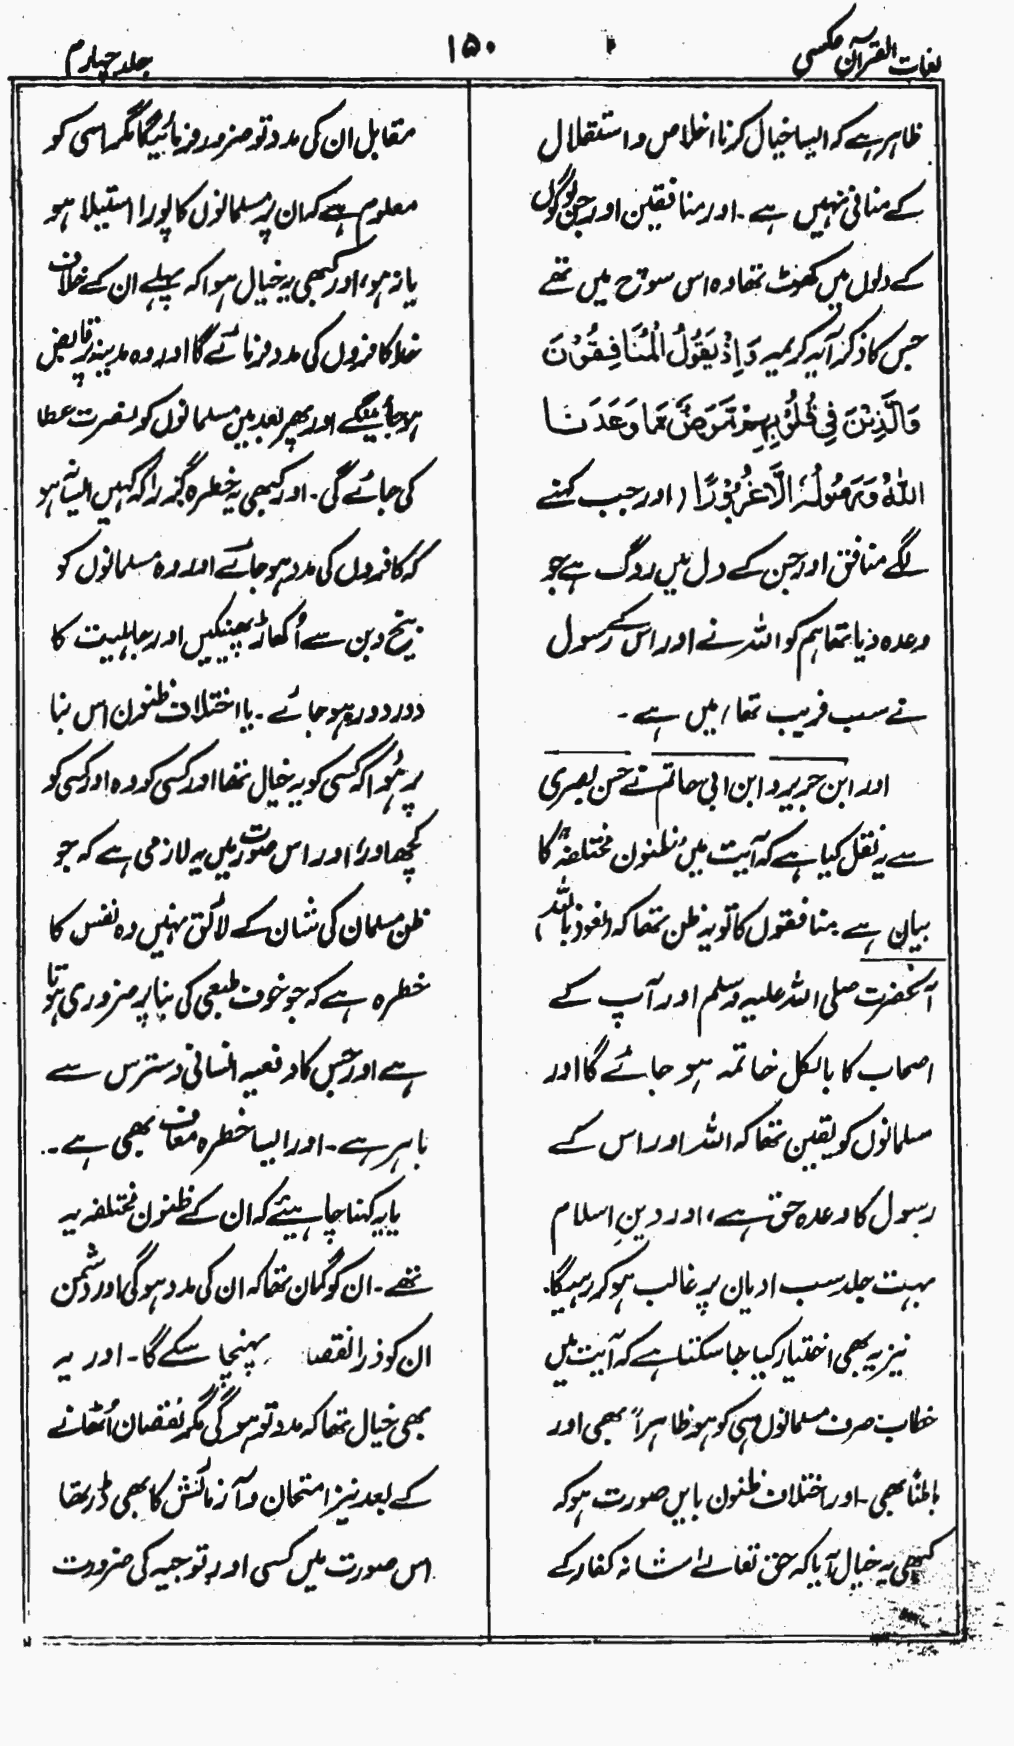 لغات القرآن عکسی
۱۵۰
جلد چہارم
ظاہر ہے کہ ایسا خیال کرنا اخلاص و استقلال
کے منافی نہیں ہے ۔ اور منافقین اور جن لوگوں
کے دلوں میں کھوٹ تھا وہ اس سوچ میں تھے
جس کا ذکر آیہ کریمہ وَاِذْ یَقُوْلُ الْمُنَافِقُوْنَ
وَالَّذِیْنَ فِیْ قُلُوْبِہِمْ مَّرَضٌ مَّا وَعَدَنَا
اللّٰہُ وَرَسُوْلُہٗ اِلَّا غُرُوْرًا (اور جب کہنے
لگے منافق اور جن کے دل میں روگ ہے جو
وعدہ دیا تھا ہم کو اللہ نے اور اس کے رسول
نے سب فریب تھا) میں ہے ۔
اور ابن جریر و ابن ابی حاتم نے حسن بصری
سے یہ نقل کیا ہے کہ آیت میں ظنون مختلفہ کا
بیان ہے ۔ منافقوں کا تو یہ ظن تھا کہ (نعوذ باللہ)
آنحضرت صلی اللہ علیہ وسلم اور آپ کے
اصحاب کا بالکل خاتمہ ہو جائے گا اور
مسلمانوں کو یقین تھا کہ اللہ اور اس کے
رسول کا وعدہ حق ہے، اور دینِ اسلام
بہت جلد سب ادیان پر غالب ہو کر رہیگا.
نیز یہ بھی اختیار کیا جا سکتا ہے کہ آیت میں
خطاب صرف مسلمانوں ہی کو ہو ظاہراً بھی اور
باطناً بھی ۔ اور اختلاف ظنون بایں صورت ہو کہ
کبھی یہ خیال آیا کہ حق تعالےٰ شانہ کفار کے
مقابل ان کی مدد تو ضرور فرمائیگا مگر اسی کو
معلوم ہے کہ ان پر مسلمانوں کا پورا استیلا ہو
یا نہ ہو، اور کبھی یہ خیال ہوا کہ پہلے ان کے خلاف
خدا کافروں کی مدد فرمائے گا اور وہ مدینہ پر قابض
ہو جائینگے اور پھر بعد میں مسلمانوں کو نصرت عطا
کی جائے گی ۔ اور کبھی یہ خطرہ گزرا کہ کہیں ایسا نہ ہو
کہ کافروں کی مدد ہو جائے اور وہ مسلمانوں کو
بیخ و بن سے اُکھاڑ پھینکیں اور جاہلیت کا
دور دورہ ہو جائے ۔ یا اختلاف ظنون اس بنا
پر ہُوا کہ کسی کو یہ خیال تھا اور کسی کو وہ اور کسی کو
کچھ اور، اور اس صورت میں یہ لازمی ہے کہ جو
ظن مسلمان کی شان کے لائق نہیں وہ نفس کا
خطرہ ہے کہ جو خوف طبعی کی بنا پر ضروری ہوتا
ہے اور جس کا دفعیہ انسانی دسترس سے
باہر ہے ۔ اور ایسا خطرہ معاف بھی ہے ۔
یا یہ کہنا چاہیئے کہ ان کے ظنون مختلفہ یہ
تھے ۔ ان کو گمان تھا کہ ان کی مدد ہوگی اور دشمن
ان کو ذرا نقصان پہنچا سکے گا ۔ اور یہ
بھی خیال تھا کہ مدد تو ہوگی مگر نقصان اُٹھانے
کے بعد نیز امتحان و آزمائش کا بھی ڈر تھا
اس صورت میں کسی اور توجیہ کی ضرورت